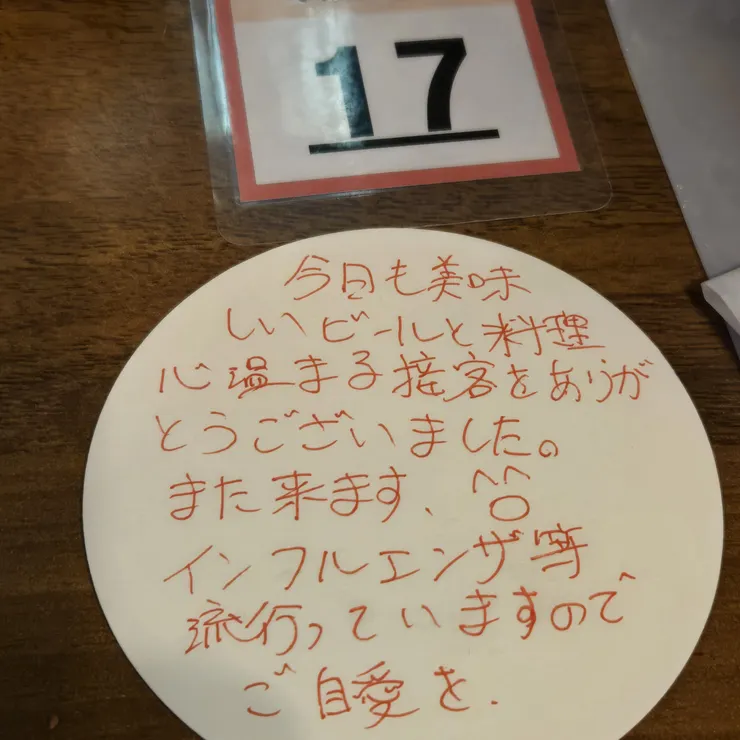 17
今日も美味
しいビールと料理
心温まる接客をありが
とうございました。
また来ます、^^
インフルエンザ等
流行っていますので
ご自愛を.